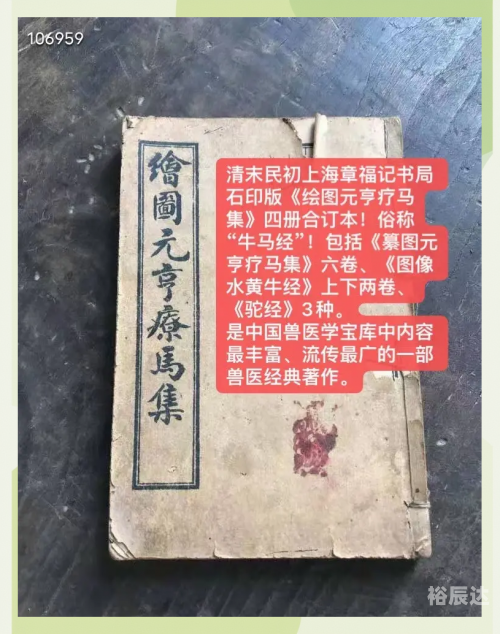 106959
繪圖元亨療馬集
清末民初上海章福记书局
石印版《绘图元亨疗马
集》四册合订本！俗称
“牛马经”！包括《纂图元
亨疗马集》六卷、《图像
水黄牛经》上下两卷、
《驼经》3种。
是中国兽医学宝库中内容
最丰富、流传最广的一部
兽医经典著作。
裕辰达